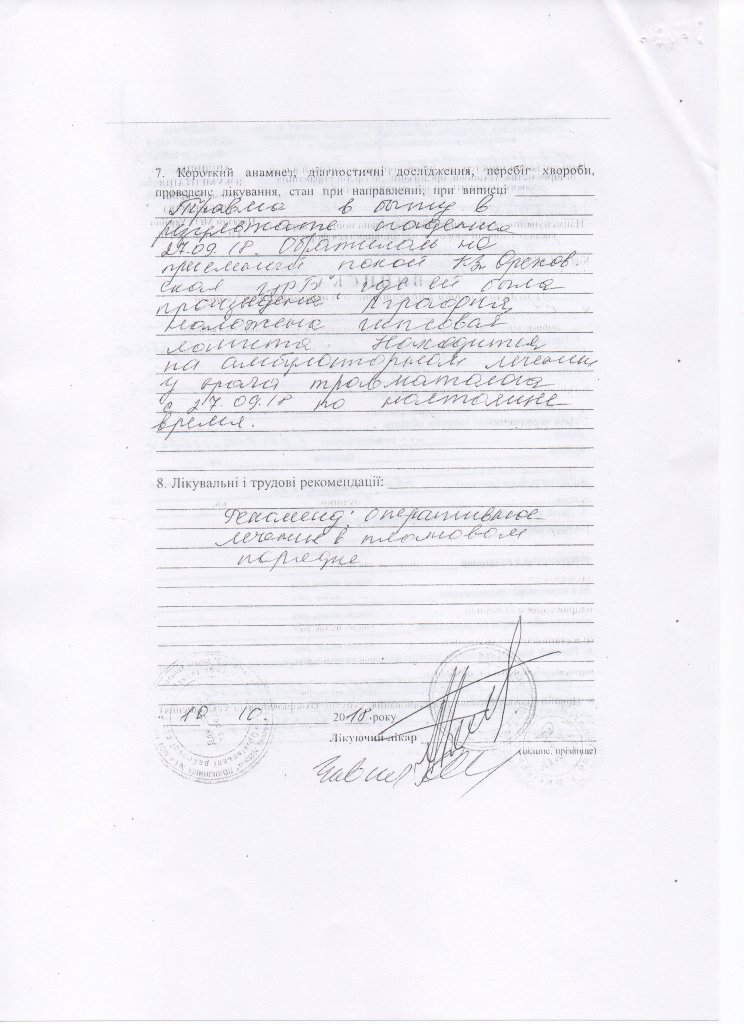 7. Короткий анамнез, діагностичні дослідження, перебіг хвороби,
проведене лікування, стан при направленні, при виписці
Травма в быту в
результате падения
27.09.18. Обратилась на
приемный покой КЗ "Орехов-
ская црБ" где ей была
произведена Rграфия,
наложена гипсовая
лонгета. Находится
на амбулаторном лечении
у врача травматолога
с 27.09.18 по настоящие
время.
8. Лікувальні і трудові рекомендації:
Рекоменд: оперативное
лечение в плановом
порядке
10. 10. 2018 року
Лікуючий лікар
(підпис, прізвище)